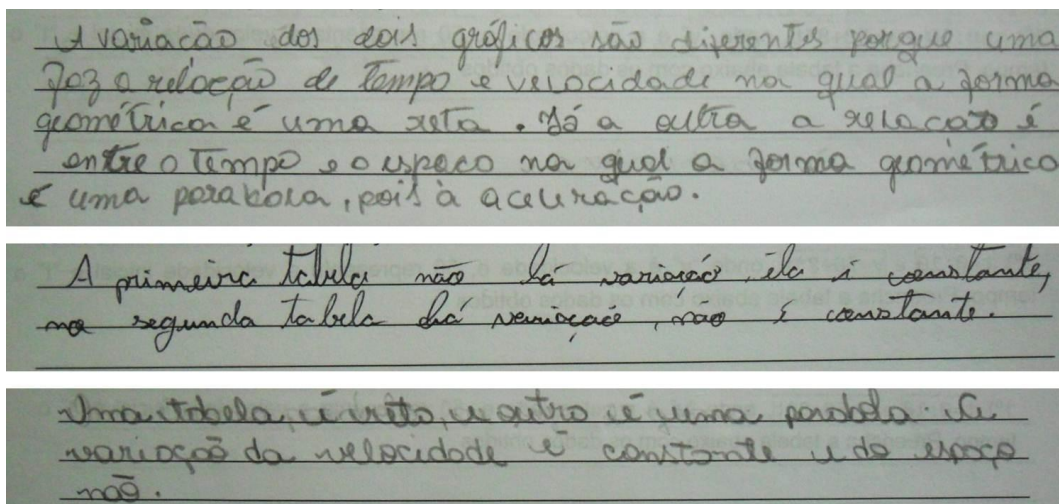 A variação dos dois gráficos são diferentes porque uma
faz a relação de Tempo e velocidade na qual a forma
geométrica é uma reta. Já a outra a relacão é
entre o Tempo e o espaco na qual a forma geométrica
é uma parabola, pois à aceleração.
A primeira tabela não há variação ela é constante,
na segunda tabela há variaçao, nao é constante.
Uma tabela, é reta, e outra é uma parabola. A
variação da velocidade é constante e do espaço
não.